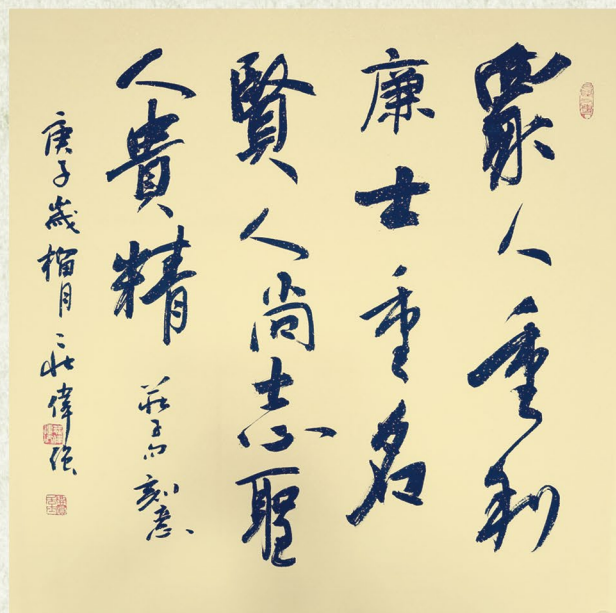 眾人重利
廉士重名
賢人尚志聖
人貴精
莊子句 刻意
庚子歲榴月 莊偉強